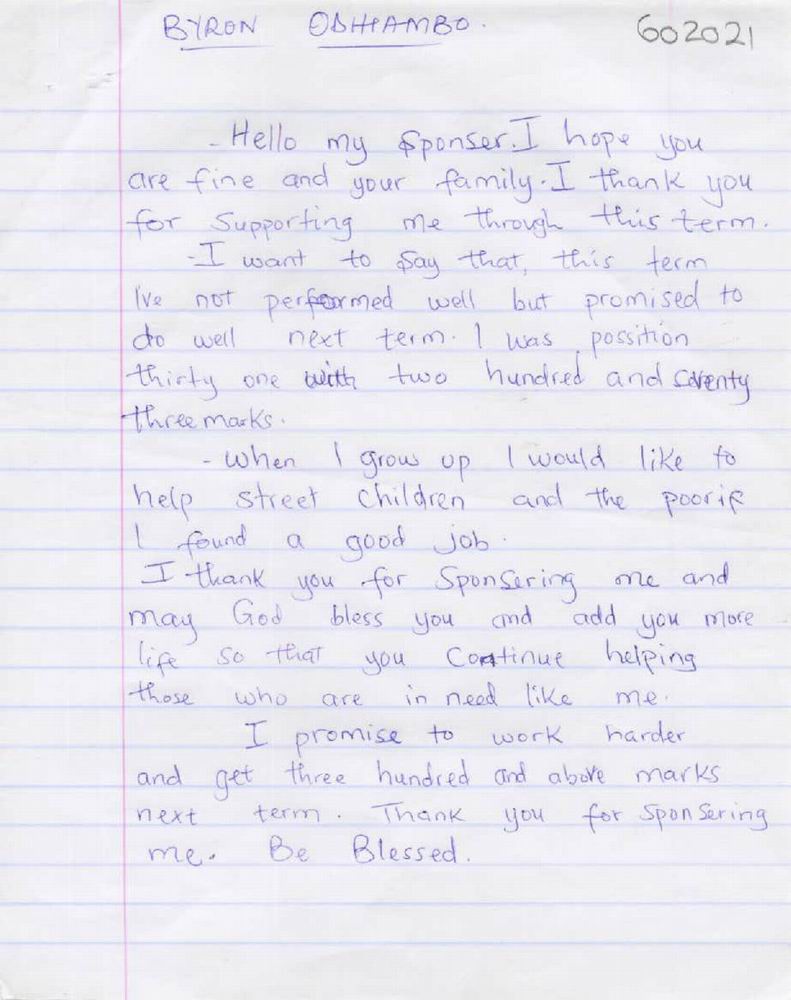 BYRON ODHIAMBO. 602021
- Hello my Sponser. I hope you
are fine and your family. I thank you
for Supporting me through this term.
- I want to Say that, this term
I've not performed well but promised to
do well next term. I was possition
thirty one with two hundred and seventy
three marks.
- When I grow up I would like to
help street children and the poor if
I found a good job.
I thank you for Sponsering me and
may God bless you and add you more
life so that you Continue helping
those who are in need like me.
I promise to work harder
and get three hundred and above marks
next term. Thank you for Sponsering
me. Be Blessed.